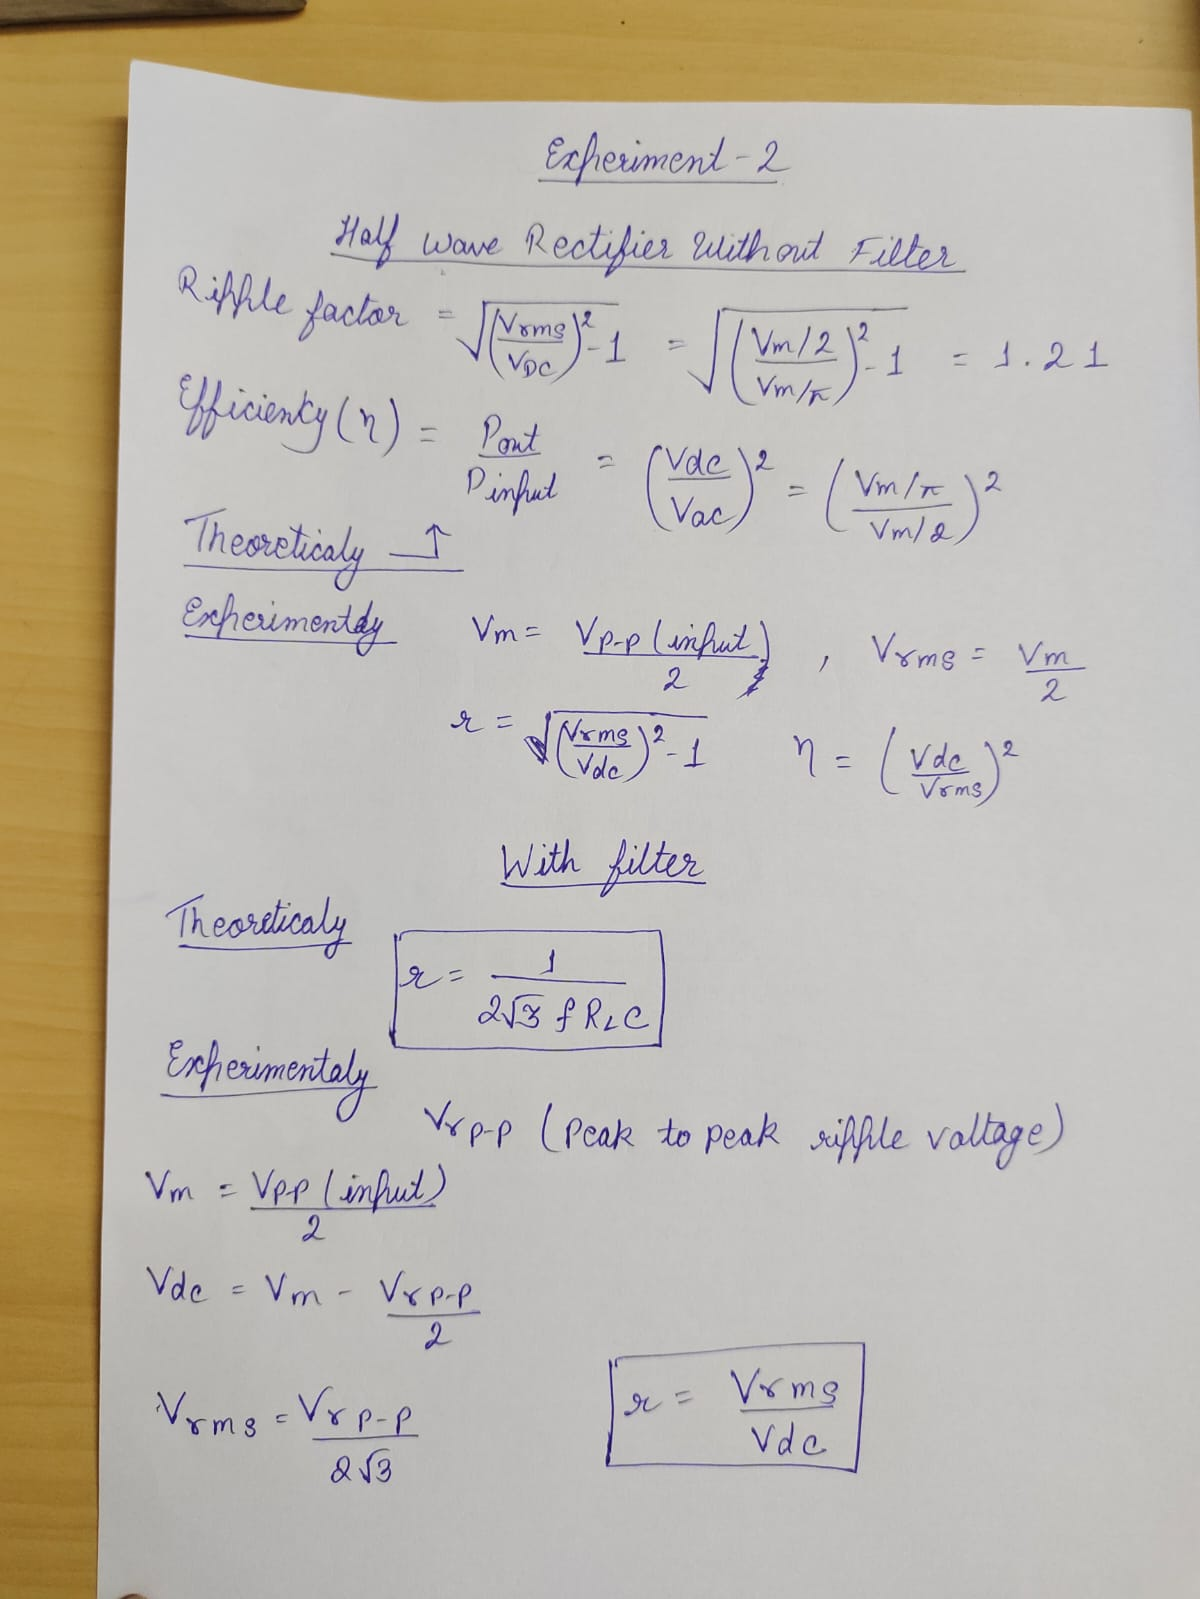 Experiment - 2
Half wave Rectifier Without Filter
Ripple factor = √((Vrms/VDC)² - 1) = √((Vm/2 / Vm/π)² - 1) = 1.21
Efficienky (η) = Pout/Pinput = (Vdc/Vac)² = (Vm/π / Vm/2)²
Theoreticaly ↑
Experimentaly Vm = Vp-p (input)/2 , Vrms = Vm/2
r = √((Vrms/Vdc)² - 1) η = (Vdc/Vrms)²
With filter
Theoreticaly
r = 1/(2√3 f RLC)
Experimentaly
Vrp-p (Peak to peak ripple voltage)
Vm = Vp-p (input)/2
Vdc = Vm - Vrp-p/2
Vrms = Vrp-p/2√3
r = Vrms/Vdc